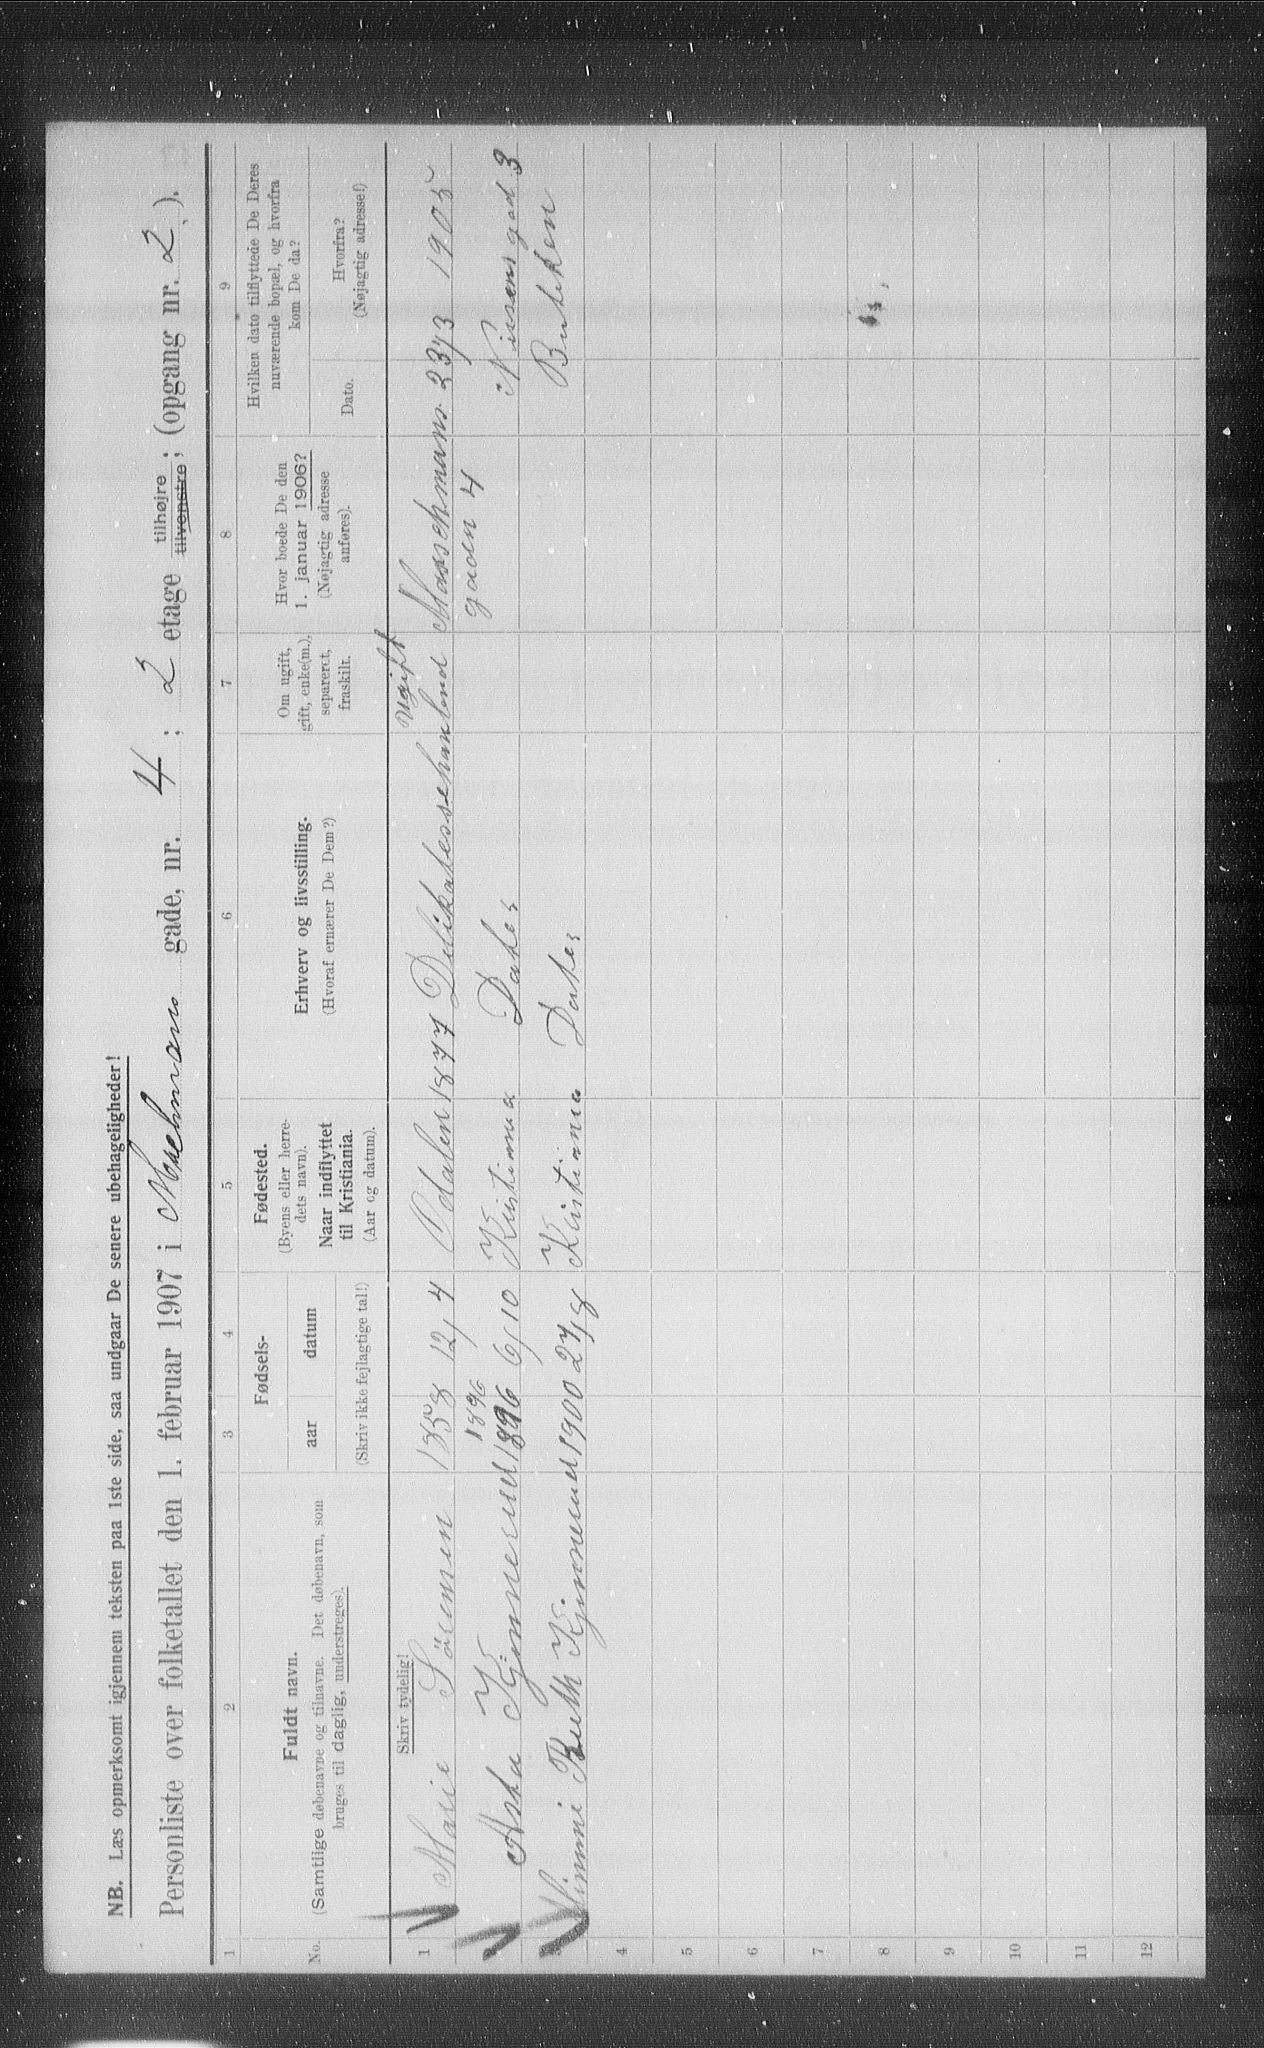 NB. Læs opmerksomt igjennem teksten paa 1ste side, saa undgaar De senere ubehageligheder!
Personliste over folketallet den 1. februar 1907 i gade, nr. 4 ; 2 etage tilhøjre tilvenstre; (opgang nr. 2 ).
1 2 3 4 5 6 7 8 9
No.
Fuldt navn.
(Samtlige døbenavne og tilnavne. Det døbenavn, som
bruges til daglig, understreges).
Fødsels-
aar datum
(Skriv ikke fejlagtige tal!)
Fødested.
(Byens eller herre-
dets navn).
Naar indflyttet
til Kristiania.
(Aar og datum).
Erhverv og livsstilling.
(Hvoraf ernærer De Dem?)
Om ugift,
gift, enke(m.),
separeret,
fraskilt.
Hvor boede De den
1. januar 1906?
(Nøjagtig adresse
anføres).
Hvilken dato tilflyttede De Deres
nuværende bopæl, og hvorfra
kom De da?
Dato.
Hvorfra?
(Nøjagtig adresse!)
Skriv tydelig!
1 Marie Sørensen 1858 12/4 Odalen 1877 Delikatessehandlerd ugift 23/3 1905
1896
gaden 4
2 Asta 1896 6/10 Kristiania Datter Nissens gad 3
3 Ruth 1900 27/8 Kristiania Datter Butiken
4
5
6
7
8
9
10
11
12